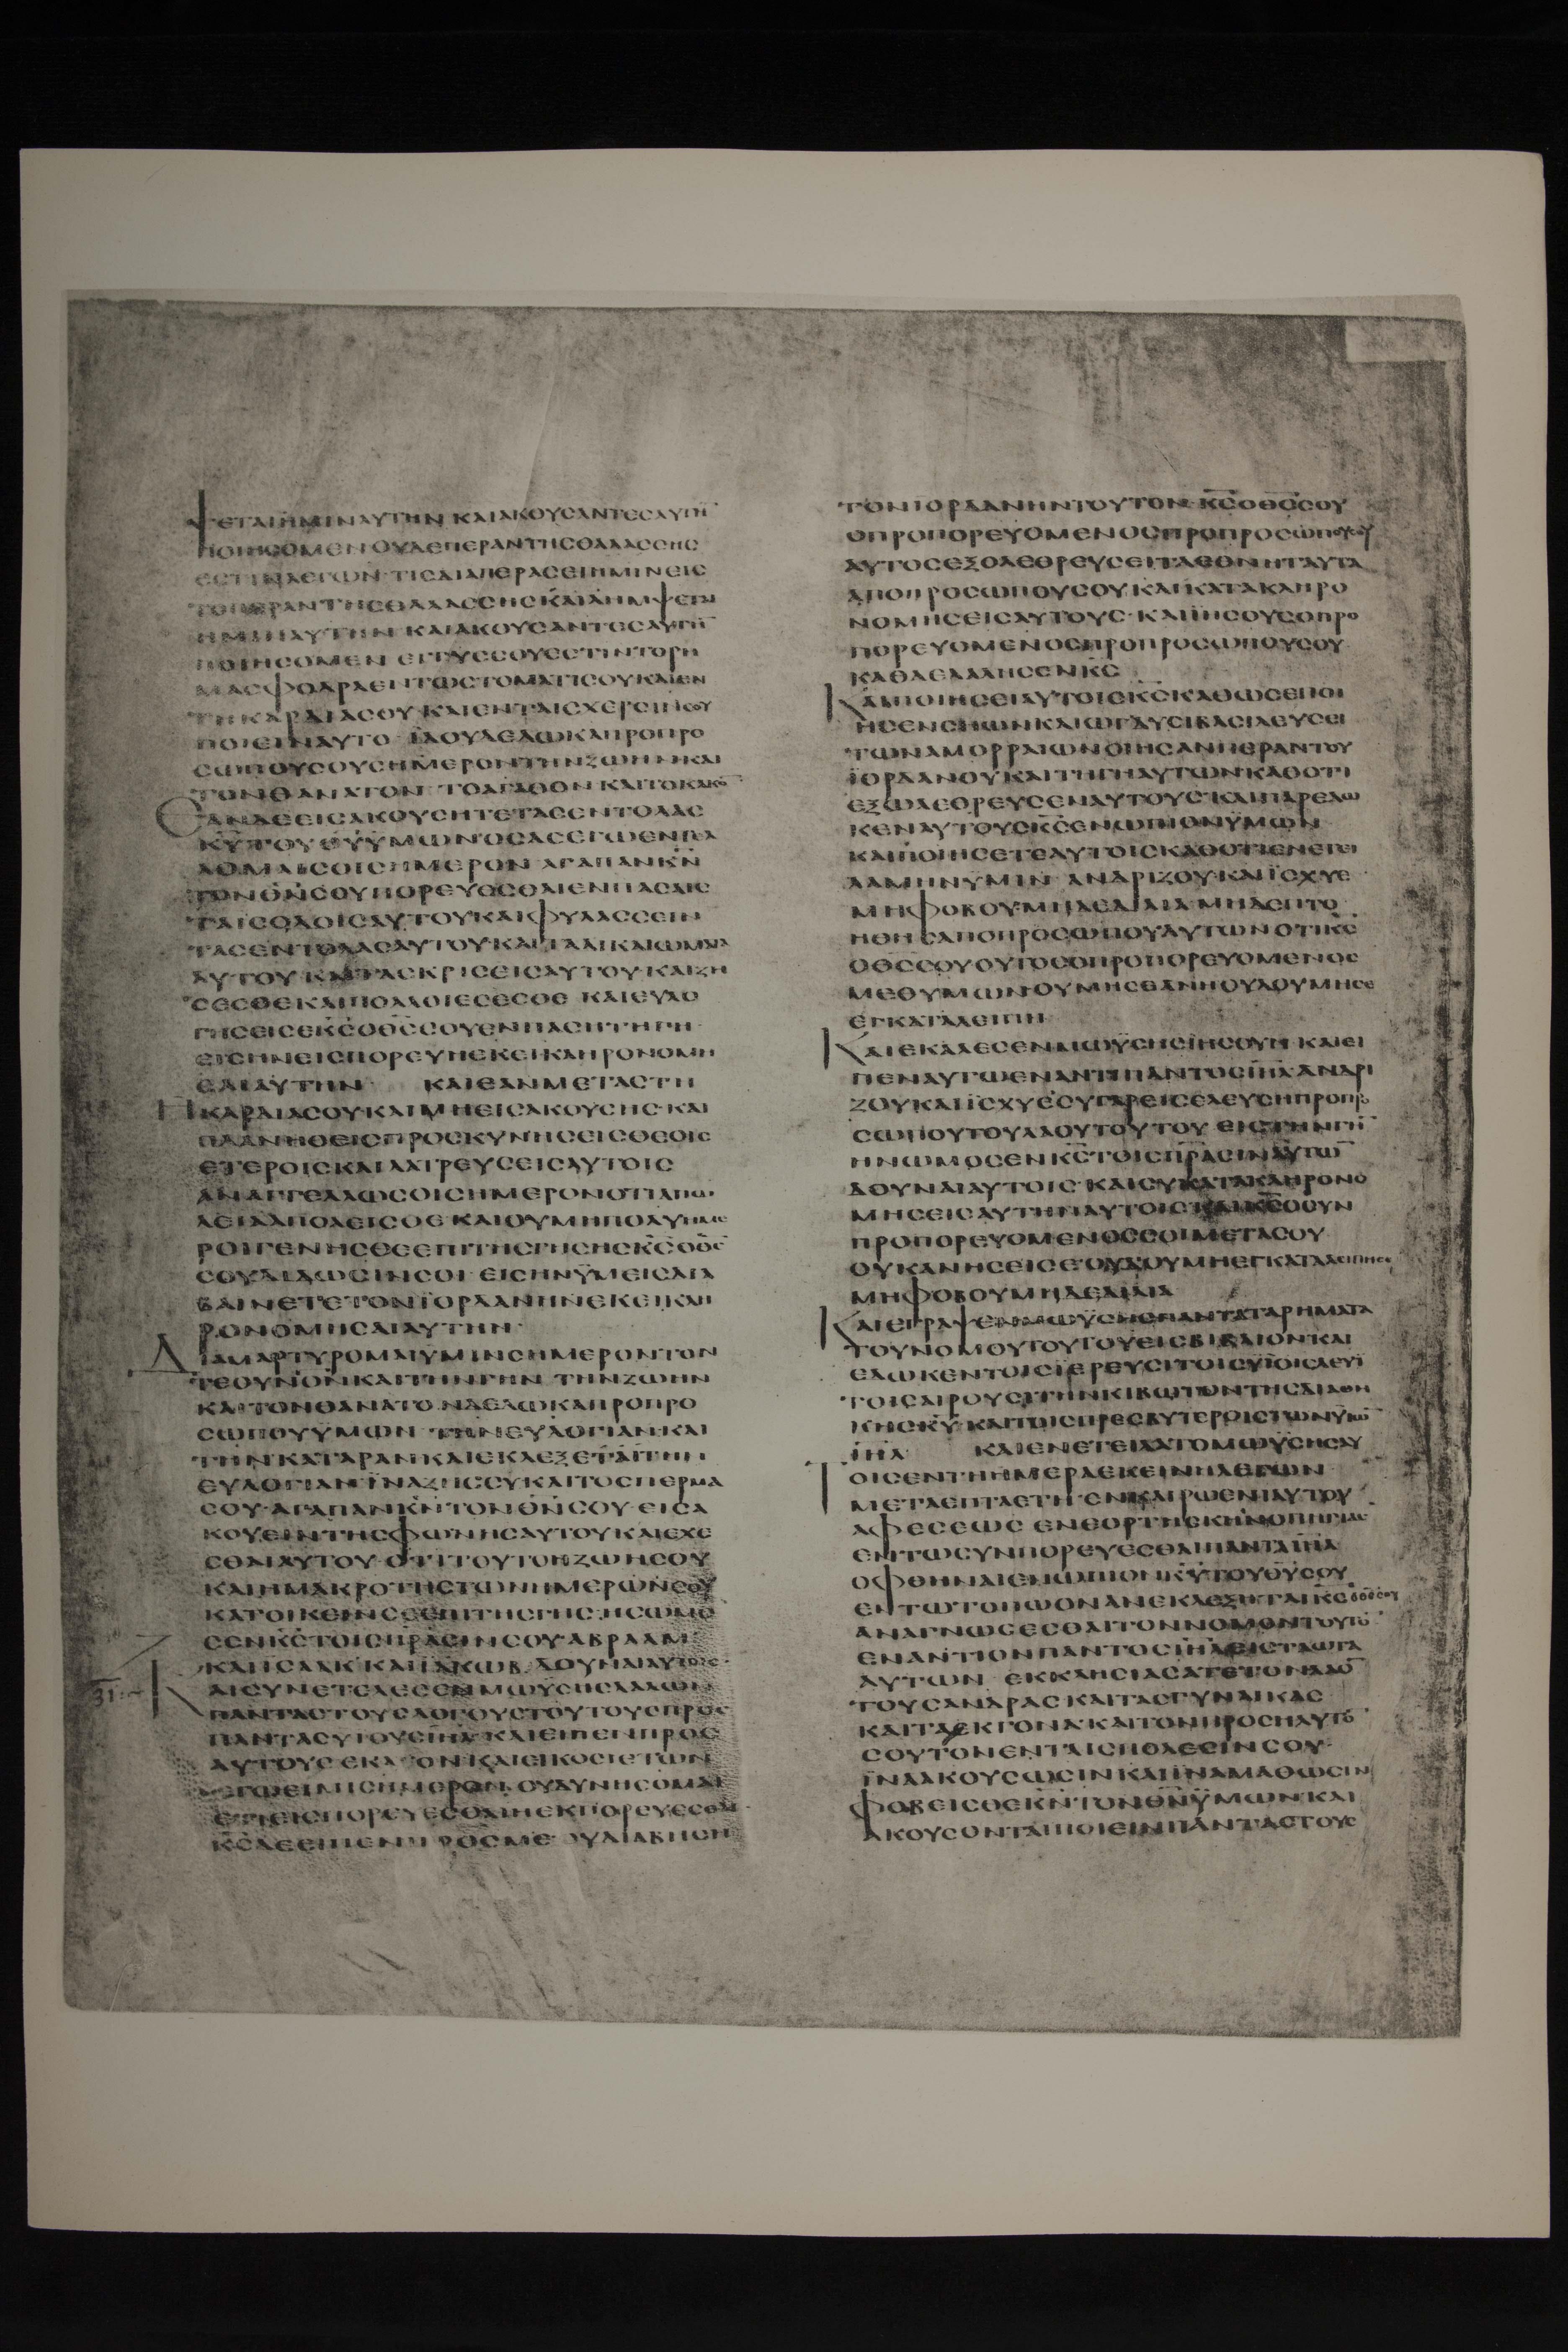 ΨΕΤΑΙΗΜΙΝΑΥΤΗΝ ΚΑΙΑΚΟΥΣΑΝΤΕΣΑΥΤΗ̅
ΠΟΙΗΣΟΜΕΝΟΥΔΕΠΕΡΑΝΤΗΣΘΑΛΑΣΣΗΣ
ΕΣΤΙΝΛΕΓΩΝ·ΤΙΣΔΙΑΠΕΡΑΣΕΙΗΜΙΝΕΙΣ
ΤΟΠΕΡΑΝΤΗΣΘΑΛΑΣΣΗΣΚΑΙΛΗΜΨΕΤΑΙ
ΗΜΙΝΑΥΤΗΝ ΚΑΙΑΚΟΥΣΑΝΤΕΣΑΥΤΗ̅
ΠΟΙΗΣΟΜΕΝ ΕΓΓΥΣΣΟΥΕΣΤΙΝΤΟΡΗ
ΜΑΣΦΟΔΡΑΕΝΤΩΣΤΟΜΑΤΙΣΟΥΚΑΙΕΝ
ΤΗΚΑΡΔΙΑΣΟΥΚΑΙΕΝΤΑΙΣΧΕΡΣΙΝΣΟΥ
ΠΟΙΕΙΝΑΥΤΟ·ΙΔΟΥΔΕΔΩΚΑΠΡΟΠΡΟ
ΣΩΠΟΥΣΟΥΣΗΜΕΡΟΝΤΗΝΖΩΗΝΚΑΙ
ΤΟΝΘΑΝΑΤΟΝ ΤΟΑΓΑΘΟΝΚΑΙΤΟΚΑΚΟ̅
ΕΑΝΔΕΕΙΣΑΚΟΥΣΗΤΕΤΑΣΕΝΤΟΛΑΣ
Κ̅Υ̅ΤΟΥΘ̅Υ̅ΥΜΩΝΟΣΑΣΕΓΩΕΝΤΕΛ
ΛΟΜΑΙΣΟΙΣΗΜΕΡΟΝ ΑΓΑΠΑΝΚ̅Ν̅
ΤΟΝΘ̅Ν̅ΣΟΥΠΟΡΕΥΕΣΘΑΙΕΝΠΑΣΑΙΣ
ΤΑΙΣΟΔΟΙΣΑΥΤΟΥΚΑΙΦΥΛΑΣΣΕΙΝ
ΤΑΣΕΝΤΟΛΑΣΑΥΤΟΥΚΑΙΤΑΔΙΚΑΙΩΜΑΤΑ
ΑΥΤΟΥΚΑΙΤΑΣΚΡΙΣΕΙΣΑΥΤΟΥΚΑΙΖΗ
ΣΕΣΘΕΚΑΙΠΟΛΛΟΙΕΣΕΣΘΕ ΚΑΙΕΥΛΟ
ΓΗΣΕΙΣΕΚ̅Σ̅ΟΘ̅Σ̅ΣΟΥΕΝΠΑΣΗΤΗΓΗ
ΕΙΣΗΝΕΙΣΠΟΡΕΥΗΕΚΕΙΚΛΗΡΟΝΟΜΗ
ΣΑΙΑΥΤΗΝ ΚΑΙΕΑΝΜΕΤΑΣΤΗ
ΗΚΑΡΔΙΑΣΟΥΚΑΙΜΗΕΙΣΑΚΟΥΣΗΣ·ΚΑΙ
ΠΛΑΝΗΘΕΙΣΠΡΟΣΚΥΝΗΣΕΙΣΘΕΟΙΣ
ΕΤΕΡΟΙΣΚΑΙΛΑΤΡΕΥΣΕΙΣΑΥΤΟΙΣ
ΑΝΑΓΓΕΛΛΩΣΟΙΣΗΜΕΡΟΝΟΤΙΑΠΩ
ΛΕΙΑΑΠΟΛΕΙΣΘΕ·ΚΑΙΟΥΜΗΠΟΛΥΗΜΕ
ΡΟΙΓΕΝΗΣΘΕΕΠΙΤΗΣΓΗΣΗΣΚ̅Σ̅ΟΘ̅Σ̅
ΣΟΥΔΙΔΩΣΙΝΣΟΙ·ΕΙΣΗΝΥΜΕΙΣΔΙΑ
ΒΑΙΝΕΤΕΤΟΝΙΟΡΔΑΝΗΝΕΚΕΙΚΛΗ
ΡΟΝΟΜΗΣΑΙΑΥΤΗΝ
ΔΙΑΜΑΡΤΥΡΟΜΑΙΥΜΙΝΣΗΜΕΡΟΝΤΟΝ
ΤΕΟΥΝΟΝΚΑΙΤΗΝΓΗΝ ΤΗΝΖΩΗΝ
ΚΑΙΤΟΝΘΑΝΑΤΟΝΔΕΔΩΚΑΠΡΟΠΡΟ
ΣΩΠΟΥΥΜΩΝ ΤΗΝΕΥΛΟΓΙΑΝΚΑΙ
ΤΗΝΚΑΤΑΡΑΝΚΑΙΕΚΛΕΞΕΤΑΙΤΗΝ
ΕΥΛΟΓΙΑΝΙΝΑΖΗΣΣΥΚΑΙΤΟΣΠΕΡΜΑ
ΣΟΥ·ΑΓΑΠΑΝΚ̅Ν̅ΤΟΝΘ̅Ν̅ΣΟΥ·ΕΙΣΑ
ΚΟΥΕΙΝΤΗΣΦΩΝΗΣΑΥΤΟΥΚΑΙΕΧΕ
ΣΘΑΙΑΥΤΟΥ·ΟΤΙΤΟΥΤΟΗΖΩΗΣΟΥ
ΚΑΙΗΜΑΚΡΟΤΗΣΤΩΝΗΜΕΡΩΝΣΟΥ
ΚΑΤΟΙΚΕΙΝΣΕΕΠΙΤΗΣΓΗΣ·ΗΣΩΜΟ
ΣΕΝΚ̅Σ̅ΤΟΙΣΠ̅Ρ̅ΑΣΙΝΣΟΥ·ΑΒΡΑΑΜ
ΚΑΙΙΣΑΑΚ·ΚΑΙΙΑΚΩΒ·ΔΟΥΝΑΙΑΥΤΟΙΣ·
ΚΑΙΣΥΝΕΤΕΛΕΣΕΝΜΩΥΣΗΣΛΑΛΩΝ
ΠΑΝΤΑΣΤΟΥΣΛΟΓΟΥΣΤΟΥΤΟΥΣΠΡΟΣ
ΠΑΝΤΑΣΥΙΟΥΣΙ̅Η̅Λ̅·ΚΑΙΕΙΠΕΝΠΡΟΣ
ΑΥΤΟΥΣ·ΕΚΑΤΟΝΚΑΙΕΙΚΟΣΙΕΤΩΝ
ΕΓΩΕΙΜΙΣΗΜΕΡΟΝ·ΟΥΔΥΝΗΣΟΜΑΙ
ΕΤΙΕΙΣΠΟΡΕΥΕΣΘΑΙΗΕΚΠΟΡΕΥΕΣΘΑΙ·
Κ̅Σ̅ΔΕΕΙΠΕΝΠΡΟΣΜΕ·ΟΥΔΙΑΒΗΣΗ
ΤΟΝΙΟΡΔΑΝΗΝΤΟΥΤΟΝ·Κ̅Σ̅ΟΘ̅Σ̅ΣΟΥ
ΟΠΡΟΠΟΡΕΥΟΜΕΝΟΣΠΡΟΠΡΟΣΩΠΟΥΣΟΥ
ΑΥΤΟΣΕΞΟΛΕΘΡΕΥΣΕΙΤΑΕΘΝΗΤΑΥΤΑ
ΑΠΟΠΡΟΣΩΠΟΥΣΟΥΚΑΙΚΑΤΑΚΛΗΡΟ
ΝΟΜΗΣΕΙΣΑΥΤΟΥΣ·ΚΑΙΙΗΣΟΥΣΟΠΡΟ
ΠΟΡΕΥΟΜΕΝΟΣΠΡΟΠΡΟΣΩΠΟΥΣΟΥ
ΚΑΘΑΕΛΑΛΗΣΕΝΚ̅Σ̅
ΚΑΙΠΟΙΗΣΕΙΑΥΤΟΙΣΚ̅Σ̅ΚΑΘΩΣΕΠΟΙ
ΗΣΕΝΣΗΩΝΚΑΙΩΓΔΥΣΙΒΑΣΙΛΕΥΣΕΙ
ΤΩΝΑΜΟΡΡΑΙΩΝΟΙΗΣΑΝΠΕΡΑΝΤΟΥ
ΙΟΡΔΑΝΟΥΚΑΙΤΗΓΗΑΥΤΩΝ·ΚΑΘΟΤΙ
ΕΞΩΛΕΘΡΕΥΣΕΝΑΥΤΟΥΣ·ΚΑΙΠΑΡΕΔΩ
ΚΕΝΑΥΤΟΥΣΚ̅Σ̅ΕΝΩΠΙΟΝΥΜΩΝ
ΚΑΙΠΟΙΗΣΕΤΕΑΥΤΟΙΣΚΑΘΟΤΙΕΝΕΤΕΙ
ΛΑΜΗΝΥΜΙΝ ΑΝΔΡΙΖΟΥΚΑΙΙΣΧΥΕ
ΜΗΦΟΒΟΥ·ΜΗΔΕΔΙΛΙΑ·ΜΗΔΕΠΤΟ
ΗΘΗΣΑΠΟΠΡΟΣΩΠΟΥΑΥΤΩΝΟΤΙΚ̅Σ̅
ΟΘ̅Σ̅ΣΟΥΟΥΤΟΣΟΠΡΟΠΟΡΕΥΟΜΕΝΟΣ
ΜΕΘΥΜΩΝΟΥΜΗΣΕΑΝΗΟΥΔΟΥΜΗΣΕ
ΕΓΚΑΤΑΛΕΙΠΗ
ΚΑΙΕΚΑΛΕΣΕΝΜΩΥΣΗΣΙΗΣΟΥΗ·ΚΑΙΕΙ
ΠΕΝΑΥΤΩΕΝΑΝΤΙΠΑΝΤΟΣΙ̅Η̅Λ̅·ΑΝΔΡΙ
ΖΟΥΚΑΙΙΣΧΥΕ·ΣΥΓΑΡΕΙΣΕΛΕΥΣΗΠΡΟΠΡΟ
ΣΩΠΟΥΤΟΥΛΑΟΥΤΟΥΤΟΥ ΕΙΣΤΗΝΓΗ̅
ΗΝΩΜΟΣΕΝΚ̅Σ̅ΤΟΙΣΠ̅Ρ̅ΑΣΙΝΑΥΤΩ̅
ΔΟΥΝΑΙΑΥΤΟΙΣ·ΚΑΙΣΥΚΑΤΑΚΛΗΡΟΝΟ
ΜΗΣΕΙΣΑΥΤΗΝΑΥΤΟΙΣ·ΚΑΙΚ̅Σ̅ΟΣΥΝ
ΠΡΟΠΟΡΕΥΟΜΕΝΟΣΣΟΙΜΕΤΑΣΟΥ
ΟΥΚΑΝΗΣΕΙΣΕΟΥΔΟΥΜΗΕΓΚΑΤΑΛΕΙΠΗΣΕ
ΜΗΦΟΒΟΥΜΗΔΕΔΙΛΙΑ
ΚΑΙΕΓΡΑΨΕΝΜΩΥΣΗΣΠΑΝΤΑΤΑΡΗΜΑΤΑ
ΤΟΥΝΟΜΟΥΤΟΥΤΟΥΕΙΣΒΙΒΛΙΟΝΚΑΙ
ΕΔΩΚΕΝΤΟΙΣΙΕΡΕΥΣΙΤΟΙΣΥΙΟΙΣΛΕΥΙ
ΤΟΙΣΑΙΡΟΥΣΙΤΗΝΚΙΒΩΤΟΝΤΗΣΔΙΑΘΗ
ΚΗΣΚ̅Υ̅·ΚΑΙΤΟΙΣΠΡΕΣΒΥΤΕΡΟΙΣΤΩΝΥΙΩ̅
Ι̅Η̅Λ̅ ΚΑΙΕΝΕΤΕΙΛΑΤΟΜΩΥΣΗΣΑΥ
ΤΟΙΣΕΝΤΗΗΜΕΡΑΕΚΕΙΝΗΛΕΓΩΝ
ΜΕΤΑΕΠΤΑΕΤΗ·ΕΝΚΑΙΡΩΕΝΙΑΥΤΟΥ
ΑΦΕΣΕΩΣ ΕΝΕΟΡΤΗΣΚΗΝΟΠΗΓΙΑΣ
ΕΝΤΩΣΥΝΠΟΡΕΥΕΣΘΑΙΠΑΝΤΑΙ̅Η̅Λ̅
ΟΦΘΗΝΑΙΕΝΩΠΙΟΝΚ̅Υ̅ΤΟΥΘ̅Υ̅ΣΟΥ
ΕΝΤΩΤΟΠΩΟΝΑΝΕΚΛΕΞΗΤΑΙΚ̅Σ̅ΟΘ̅Σ̅ΣΟΥ
ΑΝΑΓΝΩΣΕΣΘΑΙΤΟΝΝΟΜΟΝΤΟΥΤΟ̅
ΕΝΑΝΤΙΟΝΠΑΝΤΟΣΙ̅Η̅Λ̅ΕΙΣΤΑΩΤΑ
ΑΥΤΩΝ ΕΚΚΛΗΣΙΑΣΑΤΕΤΟΝΛΑΟ̅
ΤΟΥΣΑΝΔΡΑΣΚΑΙΤΑΣΓΥΝΑΙΚΑΣ
ΚΑΙΤΑΕΚΓΟΝΑ·ΚΑΙΤΟΝΠΡΟΣΗΛΥΤΟ̅
ΣΟΥΤΟΝΕΝΤΑΙΣΠΟΛΕΣΙΝΣΟΥ
ΙΝΑΑΚΟΥΣΩΣΙΝΚΑΙΙΝΑΜΑΘΩΣΙΝ
ΦΟΒΕΙΣΘΕΚ̅Ν̅ΤΟΝΘ̅Ν̅ΥΜΩΝΚΑΙ
ΑΚΟΥΣΟΝΤΑΙΠΟΙΕΙΝΠΑΝΤΑΣΤΟΥΣ